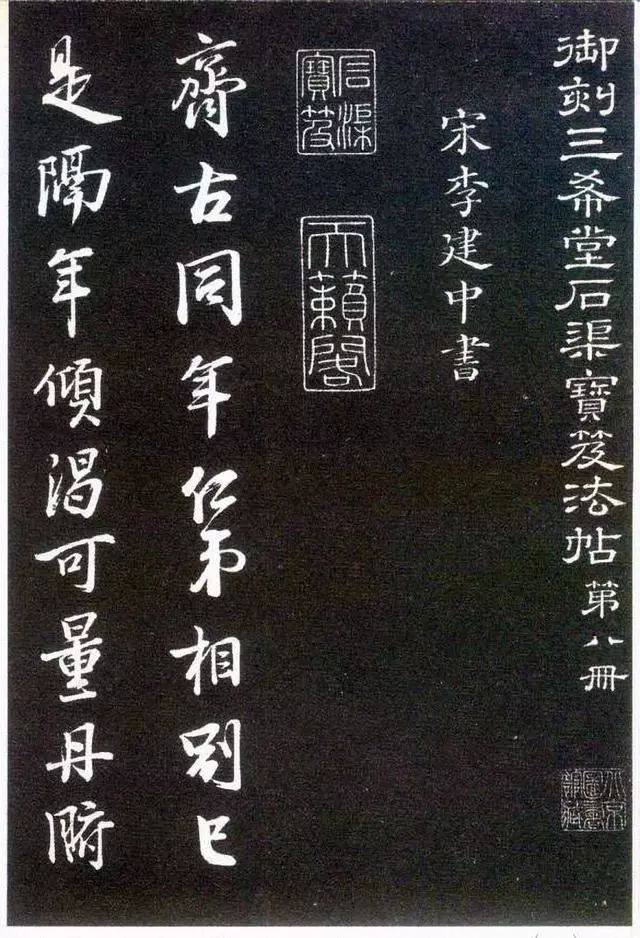 御刻三希堂石渠寶笈法帖 第八冊
宋李建中書
石渠寶笈
天籟閣
齊古同年仁弟相別已
是隔年傾渴可量丹腑